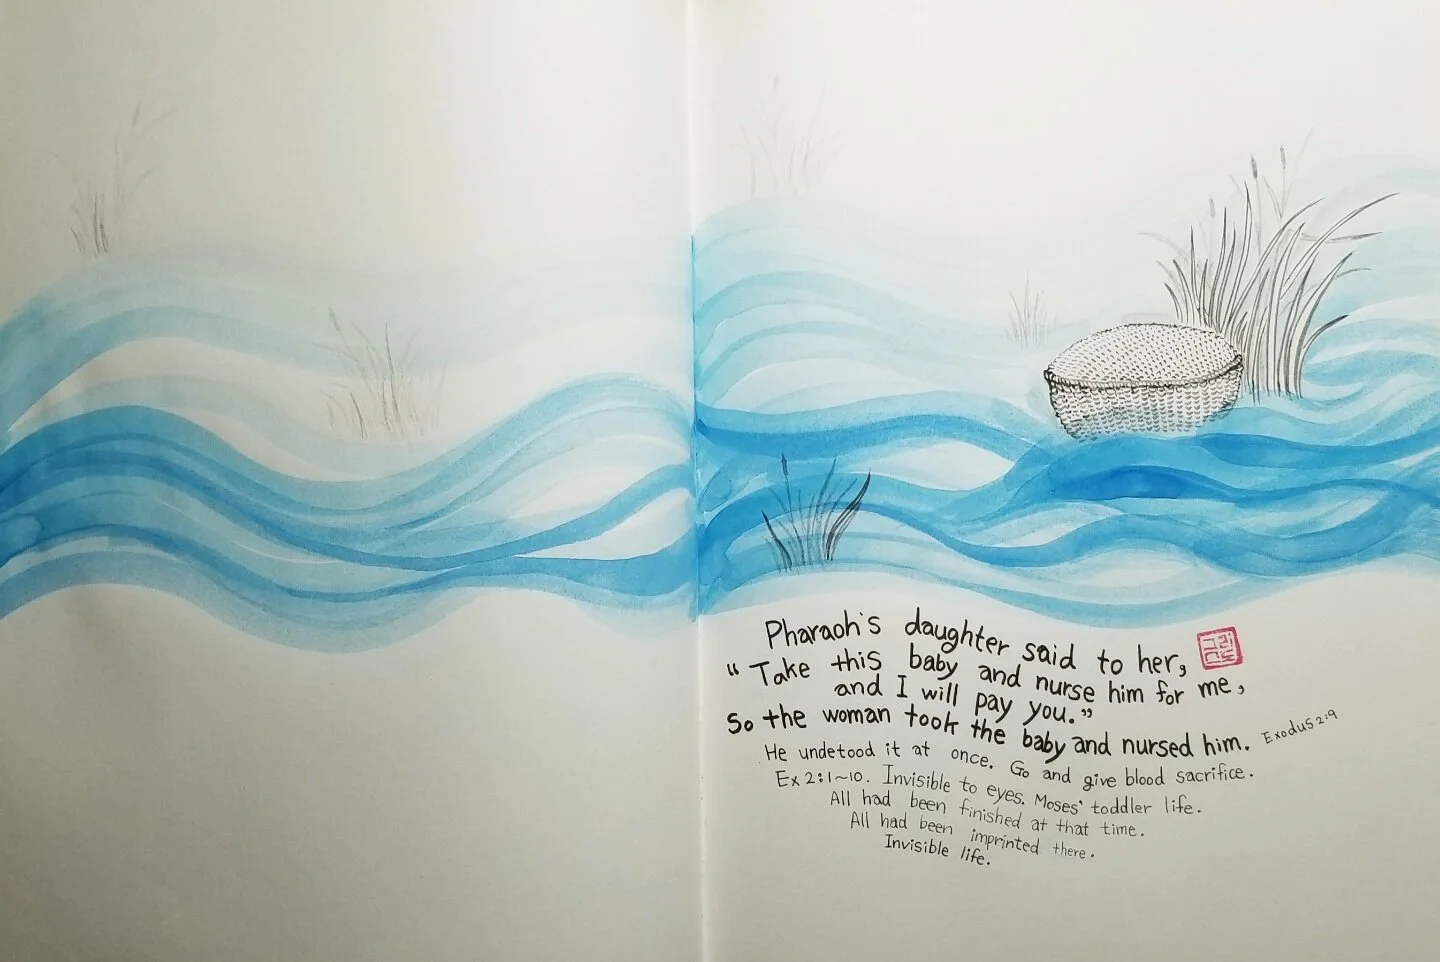 Pharaoh's daughter said to her,
“Take this baby and nurse him for me,
and I will pay you.”
So the woman took the baby and nursed him. Exodus 2:9
He undetood it at once. Go and give blood sacrifice.
Ex 2:1~10. Invisible to eyes. Moses' toddler life.
All had been finished at that time.
All had been imprinted there.
Invisible life.